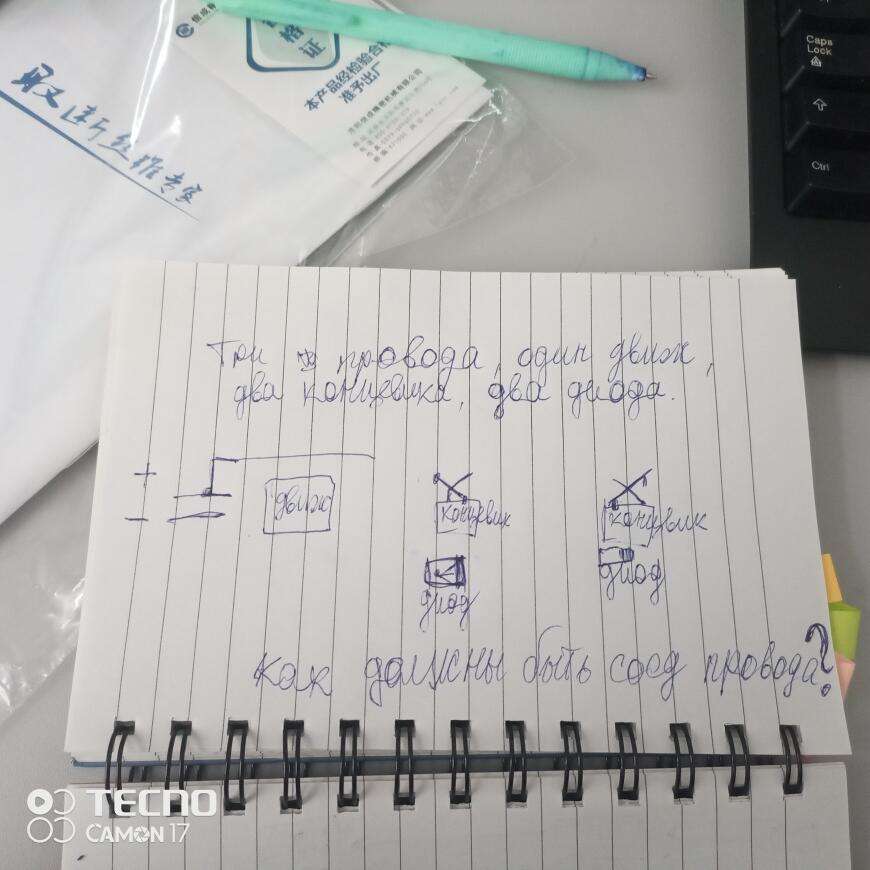 格
证
本产品经检验合格
准予出厂
Caps
Lock
Ctrl
Три провода, один движ,
два концевика, два диода.
+
-
движ
концевик
концевик
диод
диод
Как должны быть соед провода?
TECNO
CAMON 17